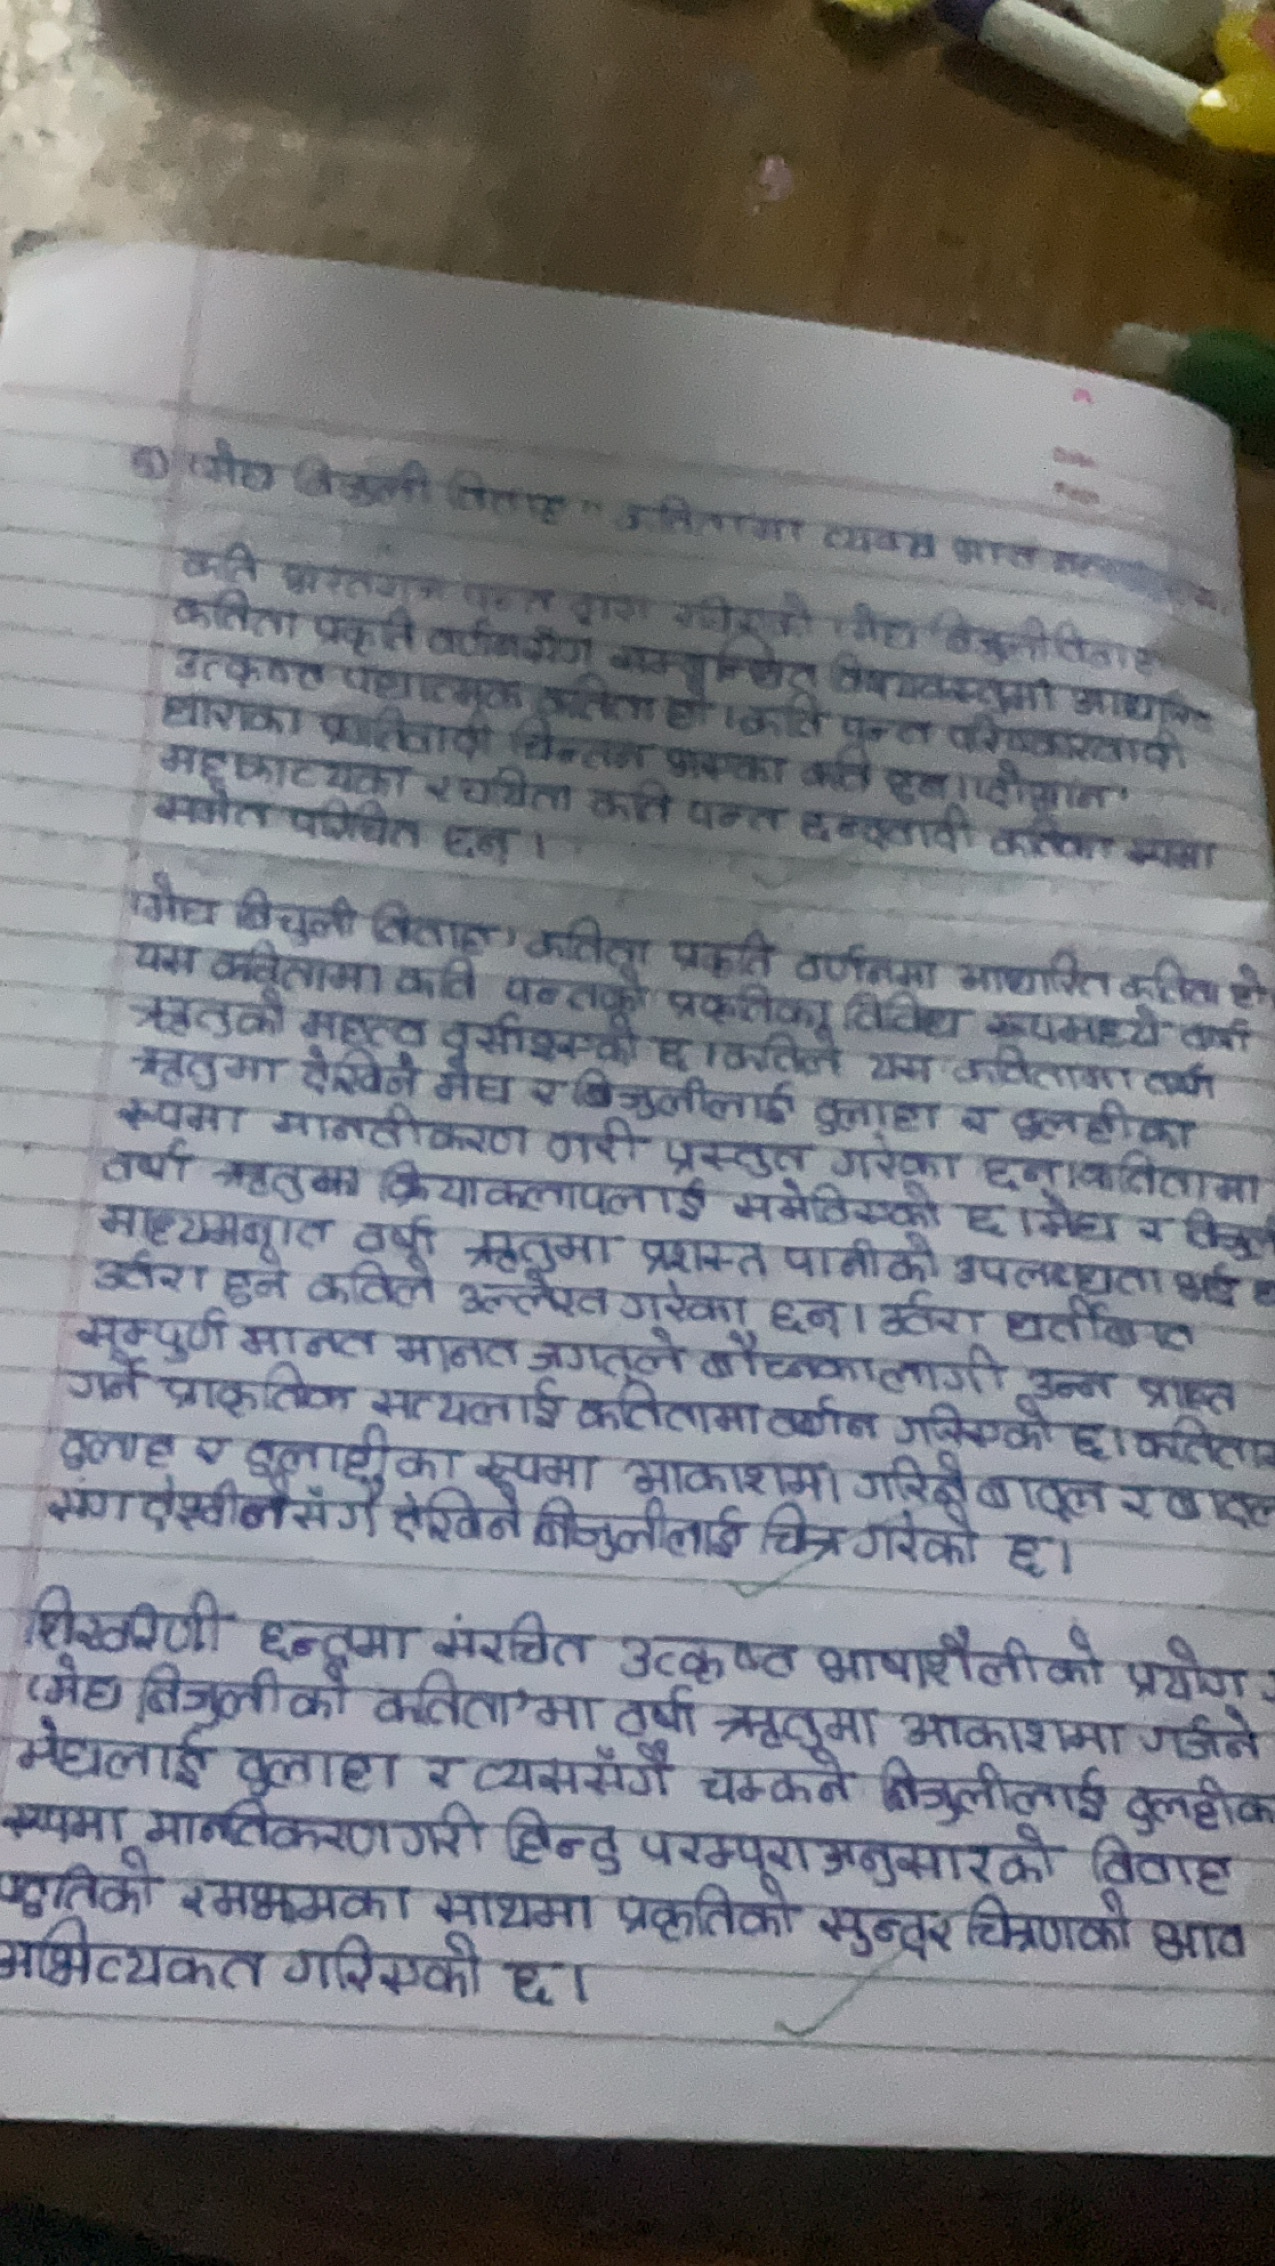 "मेघ बिजुली विवाह" कवितामा व्यक्त भाव
कवि भरतराज पन्त द्वारा रचिएको 'मेघ बिजुली विवाह'
कविता प्रकृति वर्णनसँग सम्बन्धित विषयवस्तुमा आधारित
उत्कृष्ट पद्यात्मक कविता हो । कवि पन्त परिष्कारवादी
धाराका चिन्तन भएका कवि हुन् ।
महाकाव्यका रचयिता कवि पन्त छन्दवादी कविका रूपमा
समेत परिचित छन् ।
'मेघ बिचुली विवाह' कविता प्रकृति वर्णनमा आधारित कविता हो
यस कवितामा कवि पन्तको प्रकृतिका विविध रूपमध्ये वर्षा
ऋतुको महत्व दर्साइएको छ । कविले यस कवितामा वर्षा
ऋतुमा देखिने मेघ र बिजुलीलाई दुलाहा र दुलहीका
रूपमा मानवीकरण गरी प्रस्तुत गरेका छन् । कवितामा
वर्षा ऋतुका क्रियाकलापलाई समेटिएको छ । मेघ र
माध्यमबात वर्षा ऋतुमा प्रशस्त पानीको उपलब्धता भई
उर्वरा हुने कविले उल्लेख गरेका छन् । उर्वरा धर्तीबाट
सम्पुर्ण मानव मानव जगतले बाँच्नकालागी उन्न प्राप्त
गर्ने प्राकृतिक सत्यलाई कवितामा वर्णन गरिएको छ ।
दुलाह र दुलाहीका रूपमा आकाशमा गरिने बादल र बादल
संग देखीनेसँगै देखिने बिजुलीलाई चित्र गरेको छ ।
शिखरिणी छन्दमा संरचित उत्कृष्ट भाषाशैलीको प्रयोग
'मेघ बिजुलीको कविता'मा वर्षा ऋतुमा आकाशमा गर्जने
मेघलाई दुलाहा र त्यससँगै चम्कने बिजुलीलाई दुलहीक
रूपमा मानविकरण गरी हिन्दु परम्परा अनुसारको विवाह
पद्धतिको रमझमका साथमा प्रकृतिको सुन्दर चित्रणको भाव
अभिव्यकत गरिएको छ ।